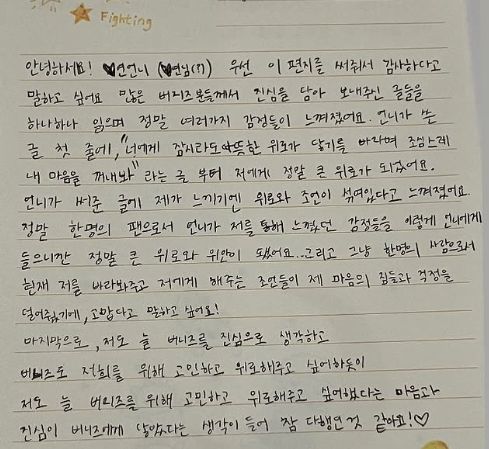 Fighting
안녕하세요! ♥연언니 (♥연님(?)) 우선 이 편지를 써줘서 감사하다고
말하고 싶어요 많은 버니즈분들께서 진심을 담아 보내주신 글들을
하나하나 읽으며 정말 여러가지 감정들이 느껴졌어요. 언니가 쓴
글 첫 줄에, "너에게 잠시라도 따뜻한 위로가 닿기를 바라며 조심스레
내 마음을 꺼내봐" 라는 글 부터 저에게 정말 큰 위로가 되었어요.
언니가 써준 글에 제가 느끼기엔 위로와 조언이 섞여있다고 느껴졌어요
정말 한명의 팬으로서 언니가 저를 통해 느꼈던 감정들을 이렇게 언니에게
들으니깐 정말 큰 위로와 위안이 됐어요.. 그리고 그냥 한명의 사람으로서
현재 저를 바라봐주고 저에게 해주는 조언들이 제 마음의 짐들과 걱정을
덜어주었기에, 고맙다고 말하고 싶어요!
마지막으로, 저도 늘 버니즈를 진심으로 생각하고
버니즈도 저희를 위해 고민하고 위로해주고 싶어하듯이
저도 늘 버니즈를 위해 고민하고 위로해주고 싶어했다는 마음과
진심이 버니즈에게 닿았다는 생각이 들어 참 다행인 것 같아요!♡